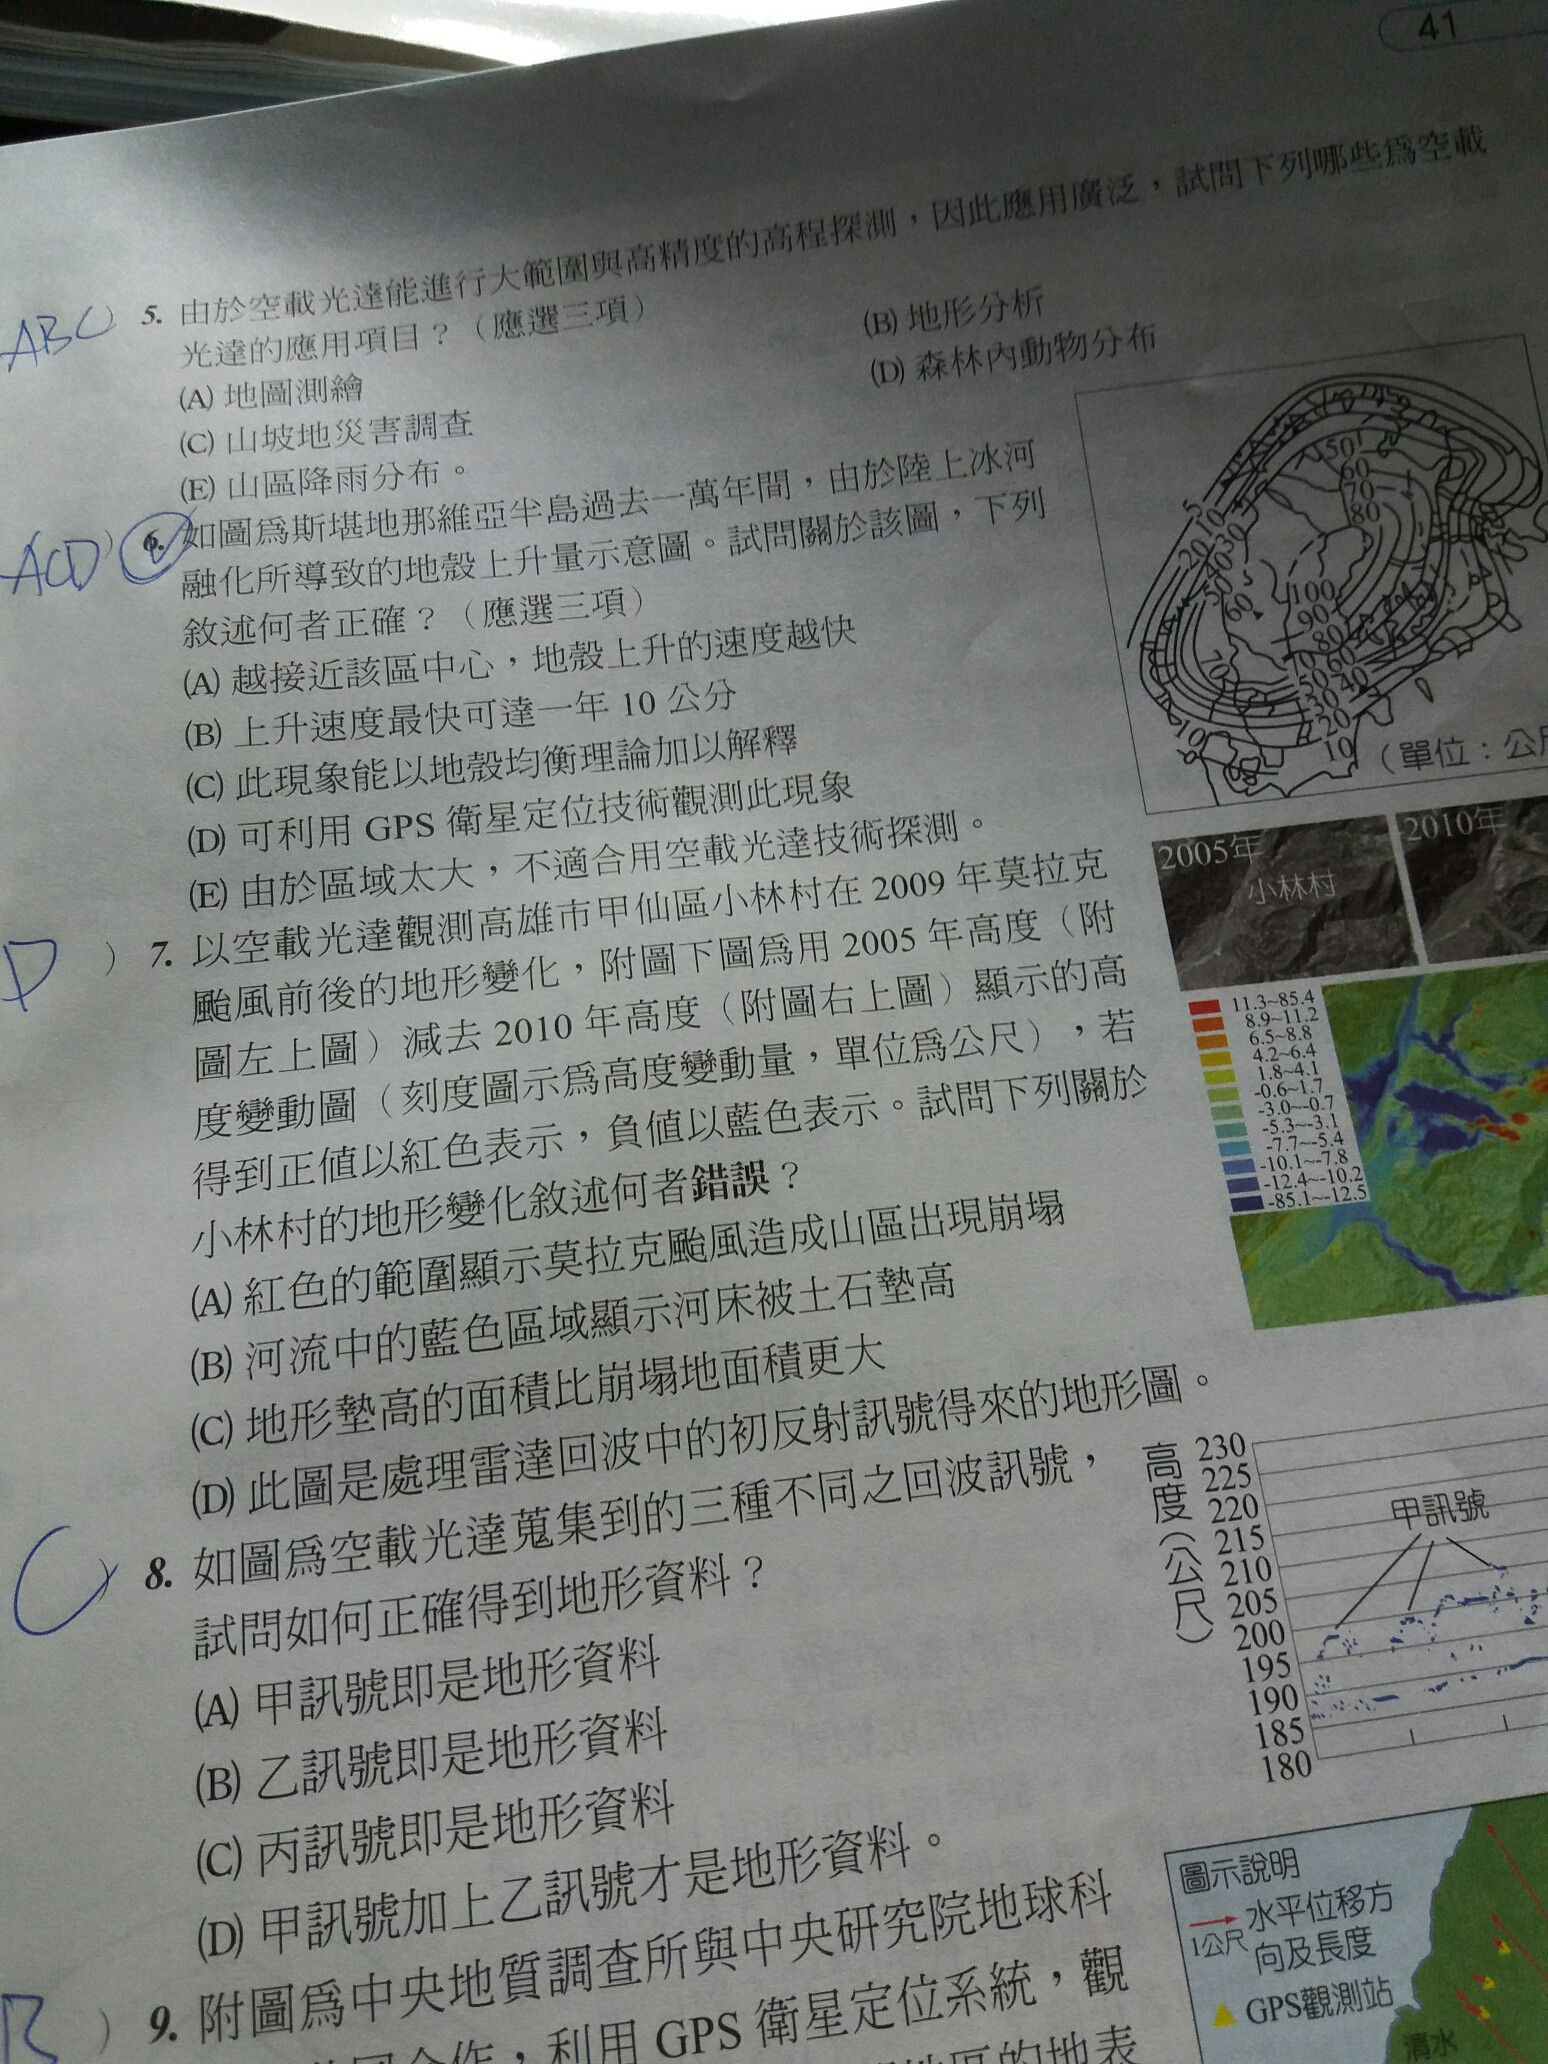 41
ABC ) 5. 由於空載光達能進行大範圍與高精度的高程探測，因此應用廣泛，試問下列哪些為空載
光達的應用項目？（應選三項）
(A) 地圖測繪
(B) 地形分析
(C) 山坡地災害調查
(D) 森林內動物分布
(E) 山區降雨分布。
ACD ) 6. 如圖為斯堪地那維亞半島過去一萬年間，由於陸上冰河
融化所導致的地殼上升量示意圖。試問關於該圖，下列
敘述何者正確？（應選三項）
(A) 越接近該區中心，地殼上升的速度越快
(B) 上升速度最快可達一年 10 公分
(C) 此現象能以地殼均衡理論加以解釋
(D) 可利用 GPS 衛星定位技術觀測此現象
(E) 由於區域太大，不適合用空載光達技術探測。
50
60
70
80
5
10
20
30
50
60
100
90
80
60
40
20
10
10
10
（單位：公
D ) 7. 以空載光達觀測高雄市甲仙區小林村在 2009 年莫拉克
颱風前後的地形變化，附圖下圖為用 2005 年高度（附
圖左上圖）減去 2010 年高度（附圖右上圖）顯示的高
度變動圖（刻度圖示為高度變動量，單位為公尺），若
得到正值以紅色表示，負值以藍色表示。試問下列關於
小林村的地形變化敘述何者錯誤？
(A) 紅色的範圍顯示莫拉克颱風造成山區出現崩塌
(B) 河流中的藍色區域顯示河床被土石墊高
(C) 地形墊高的面積比崩塌地面積更大
(D) 此圖是處理雷達回波中的初反射訊號得來的地形圖。
2005年
小林村
2010年
11.3~85.4
8.9~11.2
6.5~8.8
4.2~6.4
1.8~4.1
-0.6~1.7
-3.0~-0.7
-5.3~-3.1
-7.7~-5.4
-10.1~-7.8
-12.4~-10.2
-85.1~-12.5
C ) 8. 如圖為空載光達蒐集到的三種不同之回波訊號，
試問如何正確得到地形資料？
(A) 甲訊號即是地形資料
(B) 乙訊號即是地形資料
(C) 丙訊號即是地形資料
(D) 甲訊號加上乙訊號才是地形資料。
高度（公尺）
230
225
220
215
210
205
200
195
190
185
180
甲訊號
B ) 9. 附圖為中央地質調查所與中央研究院地球科
利用 GPS 衛星定位系統，觀
地區的地表
圖示說明
水平位移方
1公尺 向及長度
GPS觀測站
清水